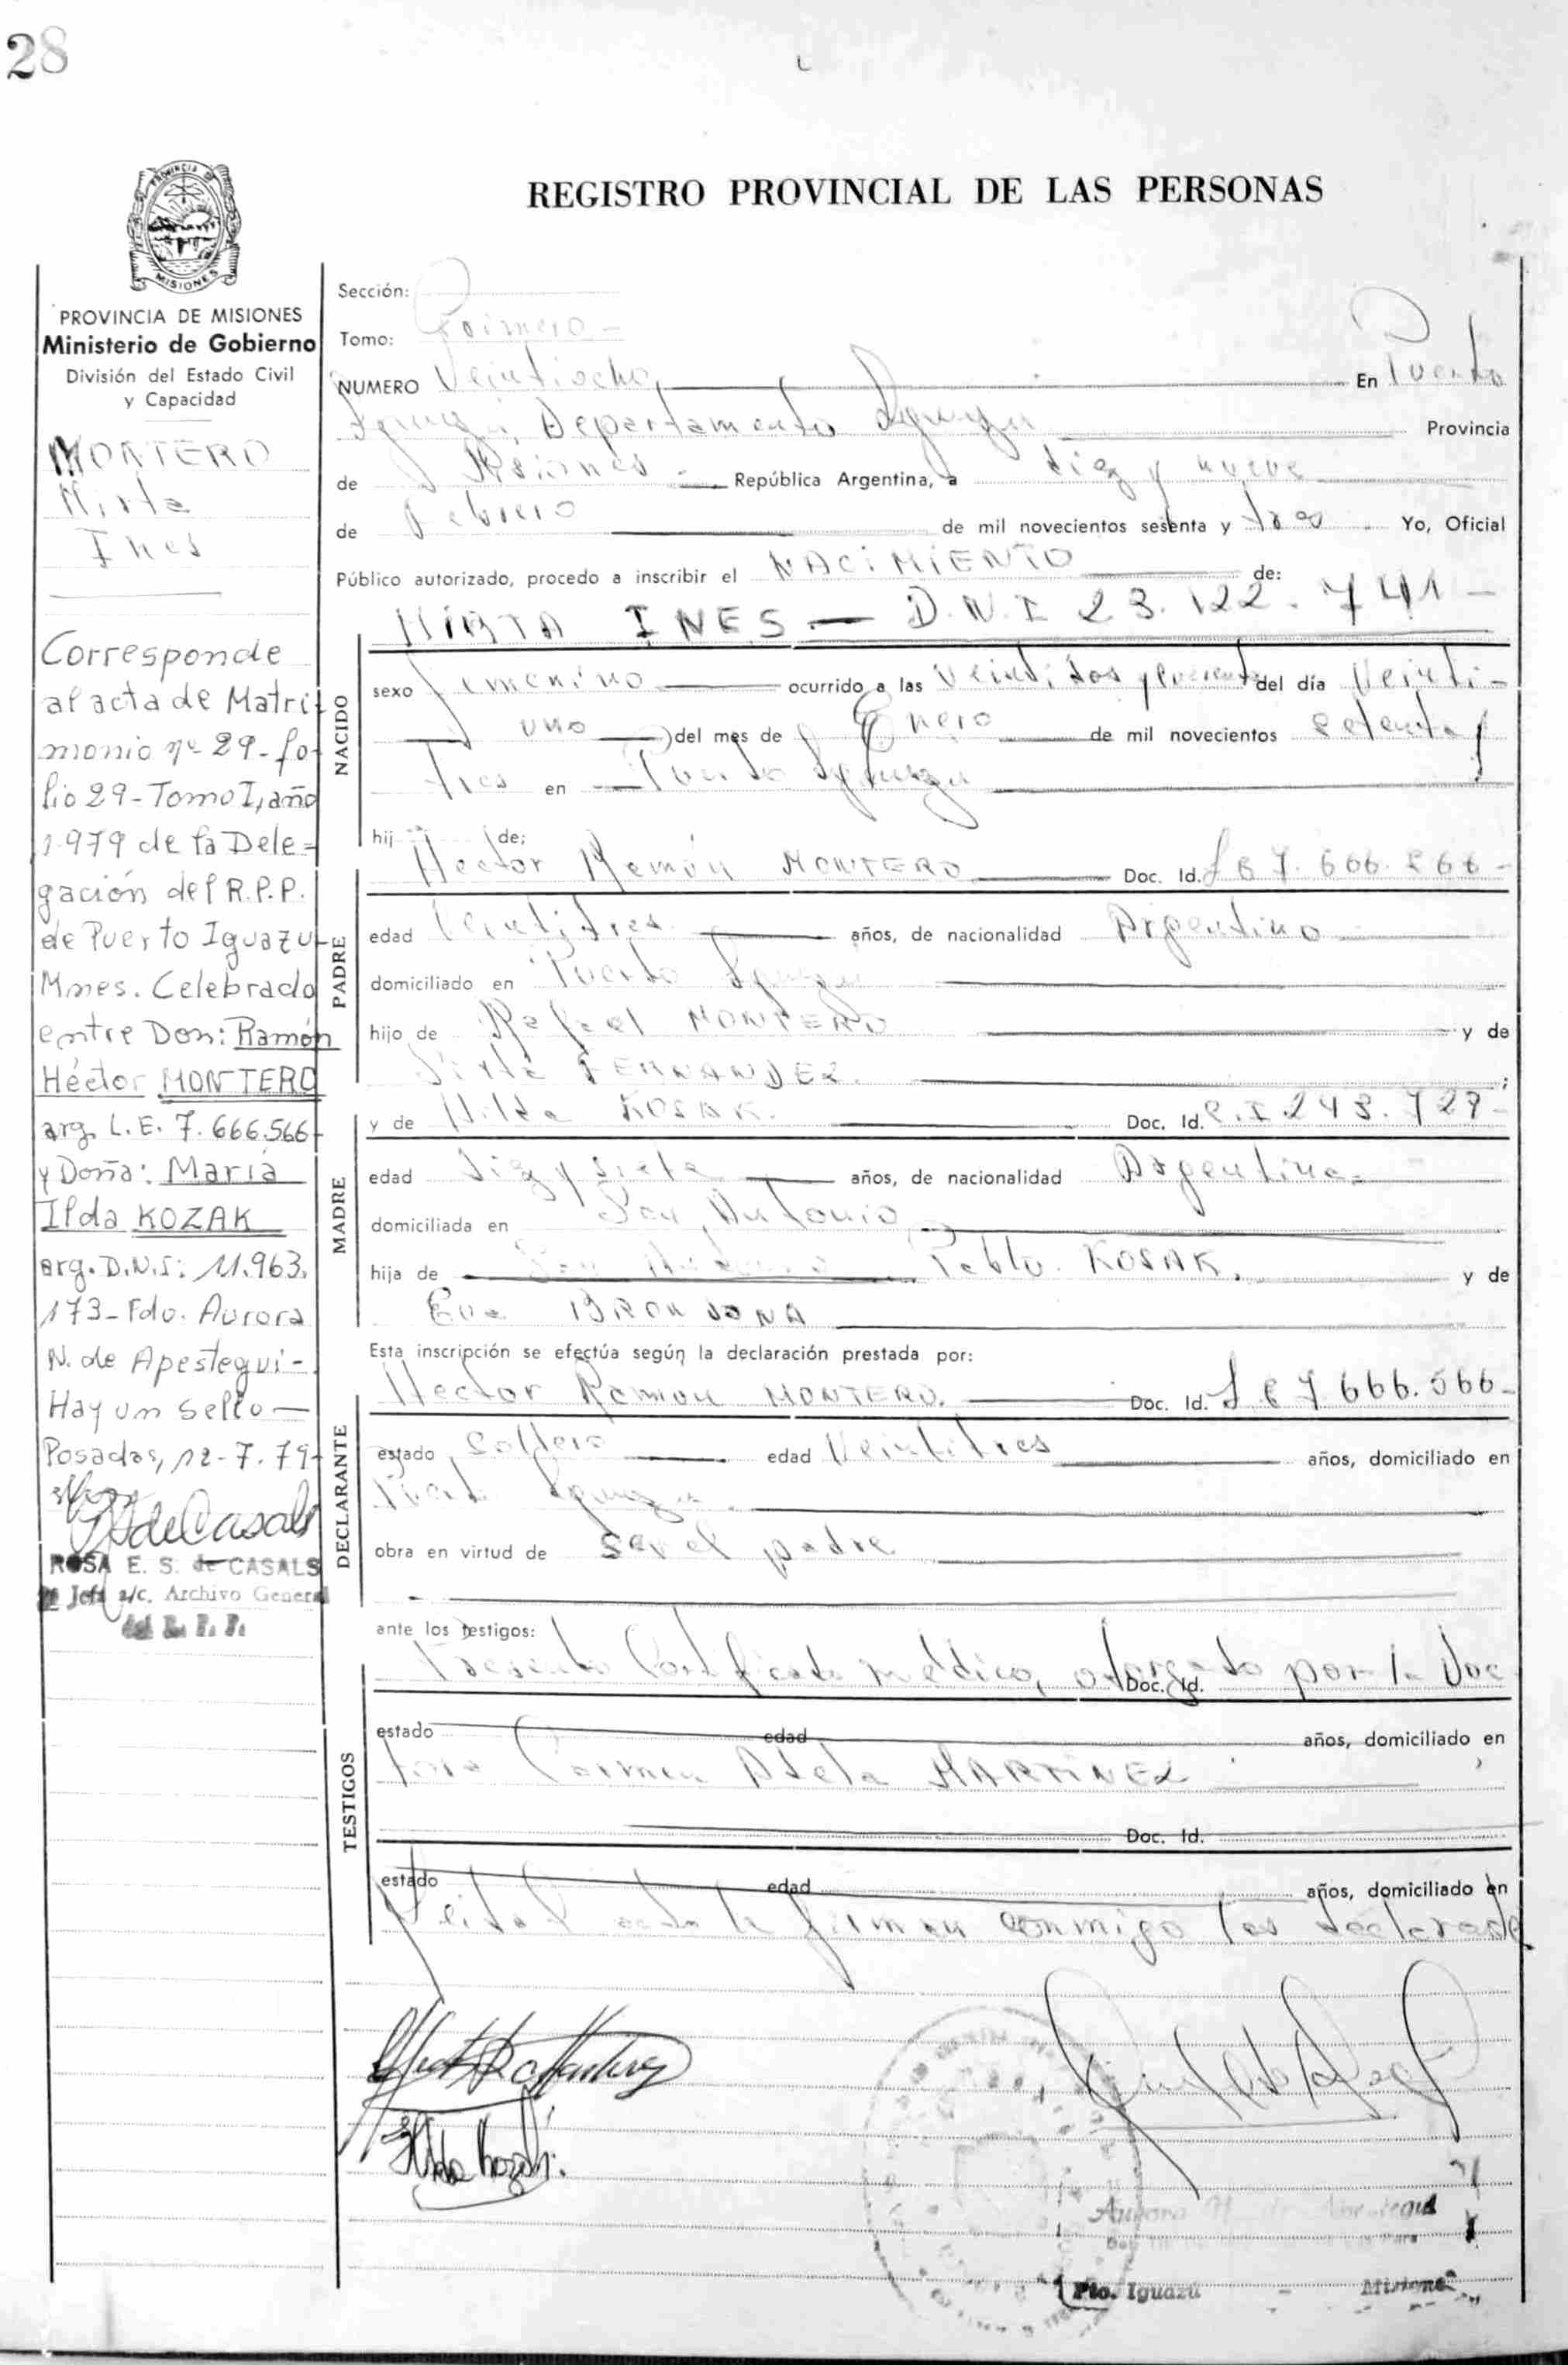 28
REGISTRO PROVINCIAL DE LAS PERSONAS
PROVINCIA DE
MISIONES
PROVINCIA DE MISIONES
Ministerio de Gobierno
División del Estado Civil
y Capacidad
MONTERO
Mirta
Ines
Corresponde
al acta de Matri-
monio nº 29-fo-
lio 29-Tomo I, año
1.979 de la Dele=
gación del R.P.P.
de Puerto Iguazú-
Mnes. Celebrado
entre Don: Ramón
Héctor MONTERO
arg. L.E. 7.666.566-
y Doña: María
Ilda KOZAK
arg. D.N.I: 11.963.
173-Fdo. Aurora
N. de Apestegui-
Hay un sello—
Posadas, 12-7.79-
ROSA E. S. de CASALS
Jefe a/c. Archivo General
del R. P. P.
Sección:
Tomo: Primero-
NUMERO Veintiocho, En Puerto
Iguazú, Departamento Iguazú Provincia
de Misiones República Argentina, a diez y nueve
de Febrero de mil novecientos sesenta y tres Yo, Oficial
Público autorizado, procedo a inscribir el NACIMIENTO de:
MIRTA INES — D.N.I 23.122.741-
NACIDO
sexo femenino ocurrido a las Veintidos y cuarenta del día Veinti-
uno del mes de Enero de mil novecientos setenta y
Tres en Puerto Iguazú
hij de:
Hector Ramón MONTERO Doc. Id. L E 7.666.566-
PADRE
edad Veintitres años, de nacionalidad Argentino
domiciliado en Puerto Iguazú
hijo de Rafael MONTERO y de
FERNANDEZ. ;
y de Hilda KOSAK. Doc. Id. C.I 243.727-
MADRE
edad Diez y siete años, de nacionalidad Argentina
domiciliada en San Antonio
hija de San Antonio Pablo KOSAK, y de
Eva
Esta inscripción se efectúa según la declaración prestada por:
Hector Ramón MONTERO. Doc. Id. L E 7.666.566-
DECLARANTE
estado Soltero edad Veintitres años, domiciliado en
Puerto Iguazú
obra en virtud de ser el padre
ante los testigos:
Presento Certificado médico, otorgado por la Doc
Doc. Id.
TESTIGOS
estado edad años, domiciliado en
tora Carmen Adela MARTINEZ
Doc. Id.
estado edad años, domiciliado en
Leida el acta la firman conmigo los declarante
Aurora N. de Apestegui
Pto. Iguazú - Misiones